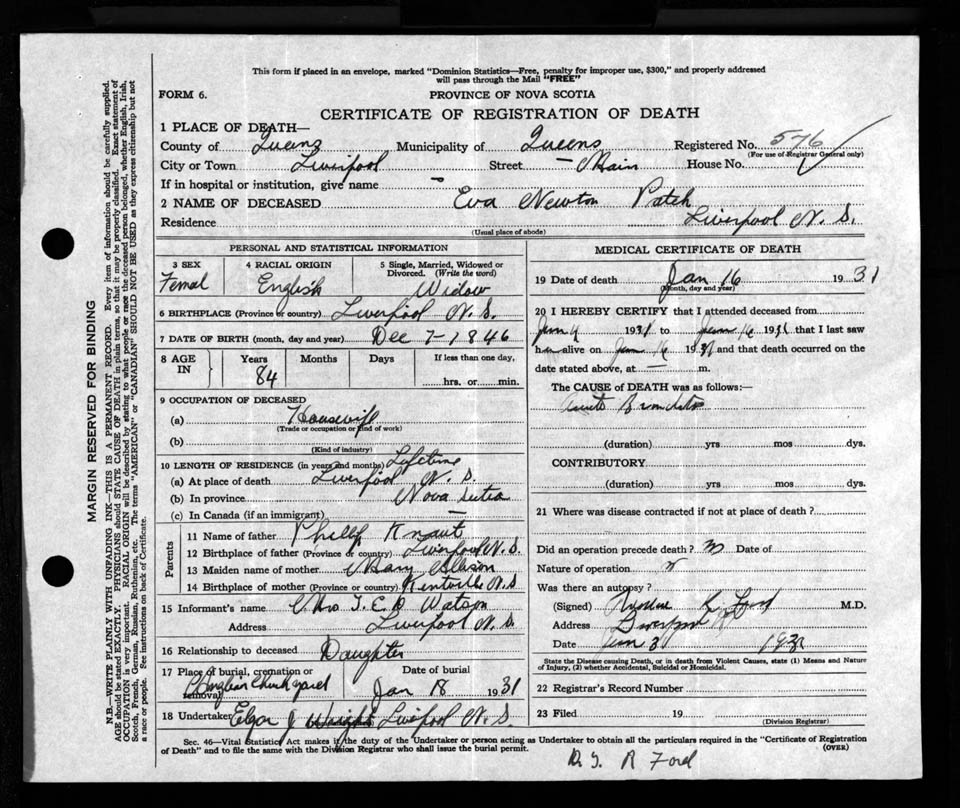 This form if placed in an envelope, marked "Dominion Statistics—Free, penalty for improper use, $300," and properly addressed
will pass through the Mail "FREE"
FORM 6.
PROVINCE OF NOVA SCOTIA
CERTIFICATE OF REGISTRATION OF DEATH
1 PLACE OF DEATH—
County of Queens Municipality of Queens Registered No. 576
(For use of Registrar General only)
City or Town Liverpool Street — Main House No.
If in hospital or institution, give name —
2 NAME OF DECEASED Eva Newton Patch
Residence Liverpool N. S.
(Usual place of abode)
PERSONAL AND STATISTICAL INFORMATION
3 SEX Femal
4 RACIAL ORIGIN English
5 Single, Married, Widowed or Divorced. (Write the word) Widow
6 BIRTHPLACE (Province or country) Liverpool N. S.
7 DATE OF BIRTH (month, day and year) Dec 7-1846
8 AGE IN Years 84 Months Days If less than one day, hrs. or min.
9 OCCUPATION OF DECEASED
(a) Housewife
(Trade or occupation or kind of work)
(b)
(Kind of industry)
10 LENGTH OF RESIDENCE (in years and months) Lifetime
(a) At place of death Liverpool N. S.
(b) In province Nova Scotia
(c) In Canada (if an immigrant) —
Parents
11 Name of father Philip Knaut
12 Birthplace of father (Province or country) Liverpool N. S.
13 Maiden name of mother Mary Alison
14 Birthplace of mother (Province or country) Kentville N. S
15 Informant's name Mrs T. E. G Watson
Address Liverpool N. S.
16 Relationship to deceased Daughter
17 Place of burial, cremation or removal Churchyard
Date of burial Jan 18 1931
18 Undertaker Elgar J Wright Livipool N. S
MEDICAL CERTIFICATE OF DEATH
19 Date of death Jan 16 1931
(Month, day and year)
20 I HEREBY CERTIFY that I attended deceased from
Jan 9 1931 to Jan 16 1931 that I last saw
her alive on Jan 16 1931 and that death occurred on the
date stated above, at — m.
The CAUSE of DEATH was as follows:—
Acute Bronchitis
(duration) yrs mos dys.
CONTRIBUTORY
(duration) yrs mos dys.
21 Where was disease contracted if not at place of death?
Did an operation precede death? Date of
Nature of operation
Was there an autopsy?
(Signed) Ford M.D.
Address Liverpool
Date Jan 31 1931
State the Disease causing Death, or in death from Violent Causes, state (1) Means and Nature
of Injury, (2) whether Accidental, Suicidal or Homicidal.
22 Registrar's Record Number
23 Filed 19
(Division Registrar)
Sec. 46—Vital Statistics Act makes it the duty of the Undertaker or person acting as Undertaker to obtain all the particulars required in the "Certificate of Registration
of Death" and to file the same with the Division Registrar who shall issue the burial permit. (OVER)
R Ford
MARGIN RESERVED FOR BINDING
N.B.—WRITE PLAINLY WITH UNFADING INK—THIS IS A PERMANENT RECORD. Every item of information should be carefully supplied.
AGE should be stated EXACTLY. PHYSICIANS should STATE CAUSE OF DEATH in plain terms, so that it may be properly classified. Exact statement of
OCCUPATION is very important. RACIAL ORIGIN will be described by stating to what people or race the deceased person belonged, whether English, Irish,
Scotch, French, German, Russian, Ruthenian, etc. The terms "AMERICAN" or "CANADIAN" SHOULD NOT BE USED as they express citizenship but not
a race or people. See instructions on back of Certificate.